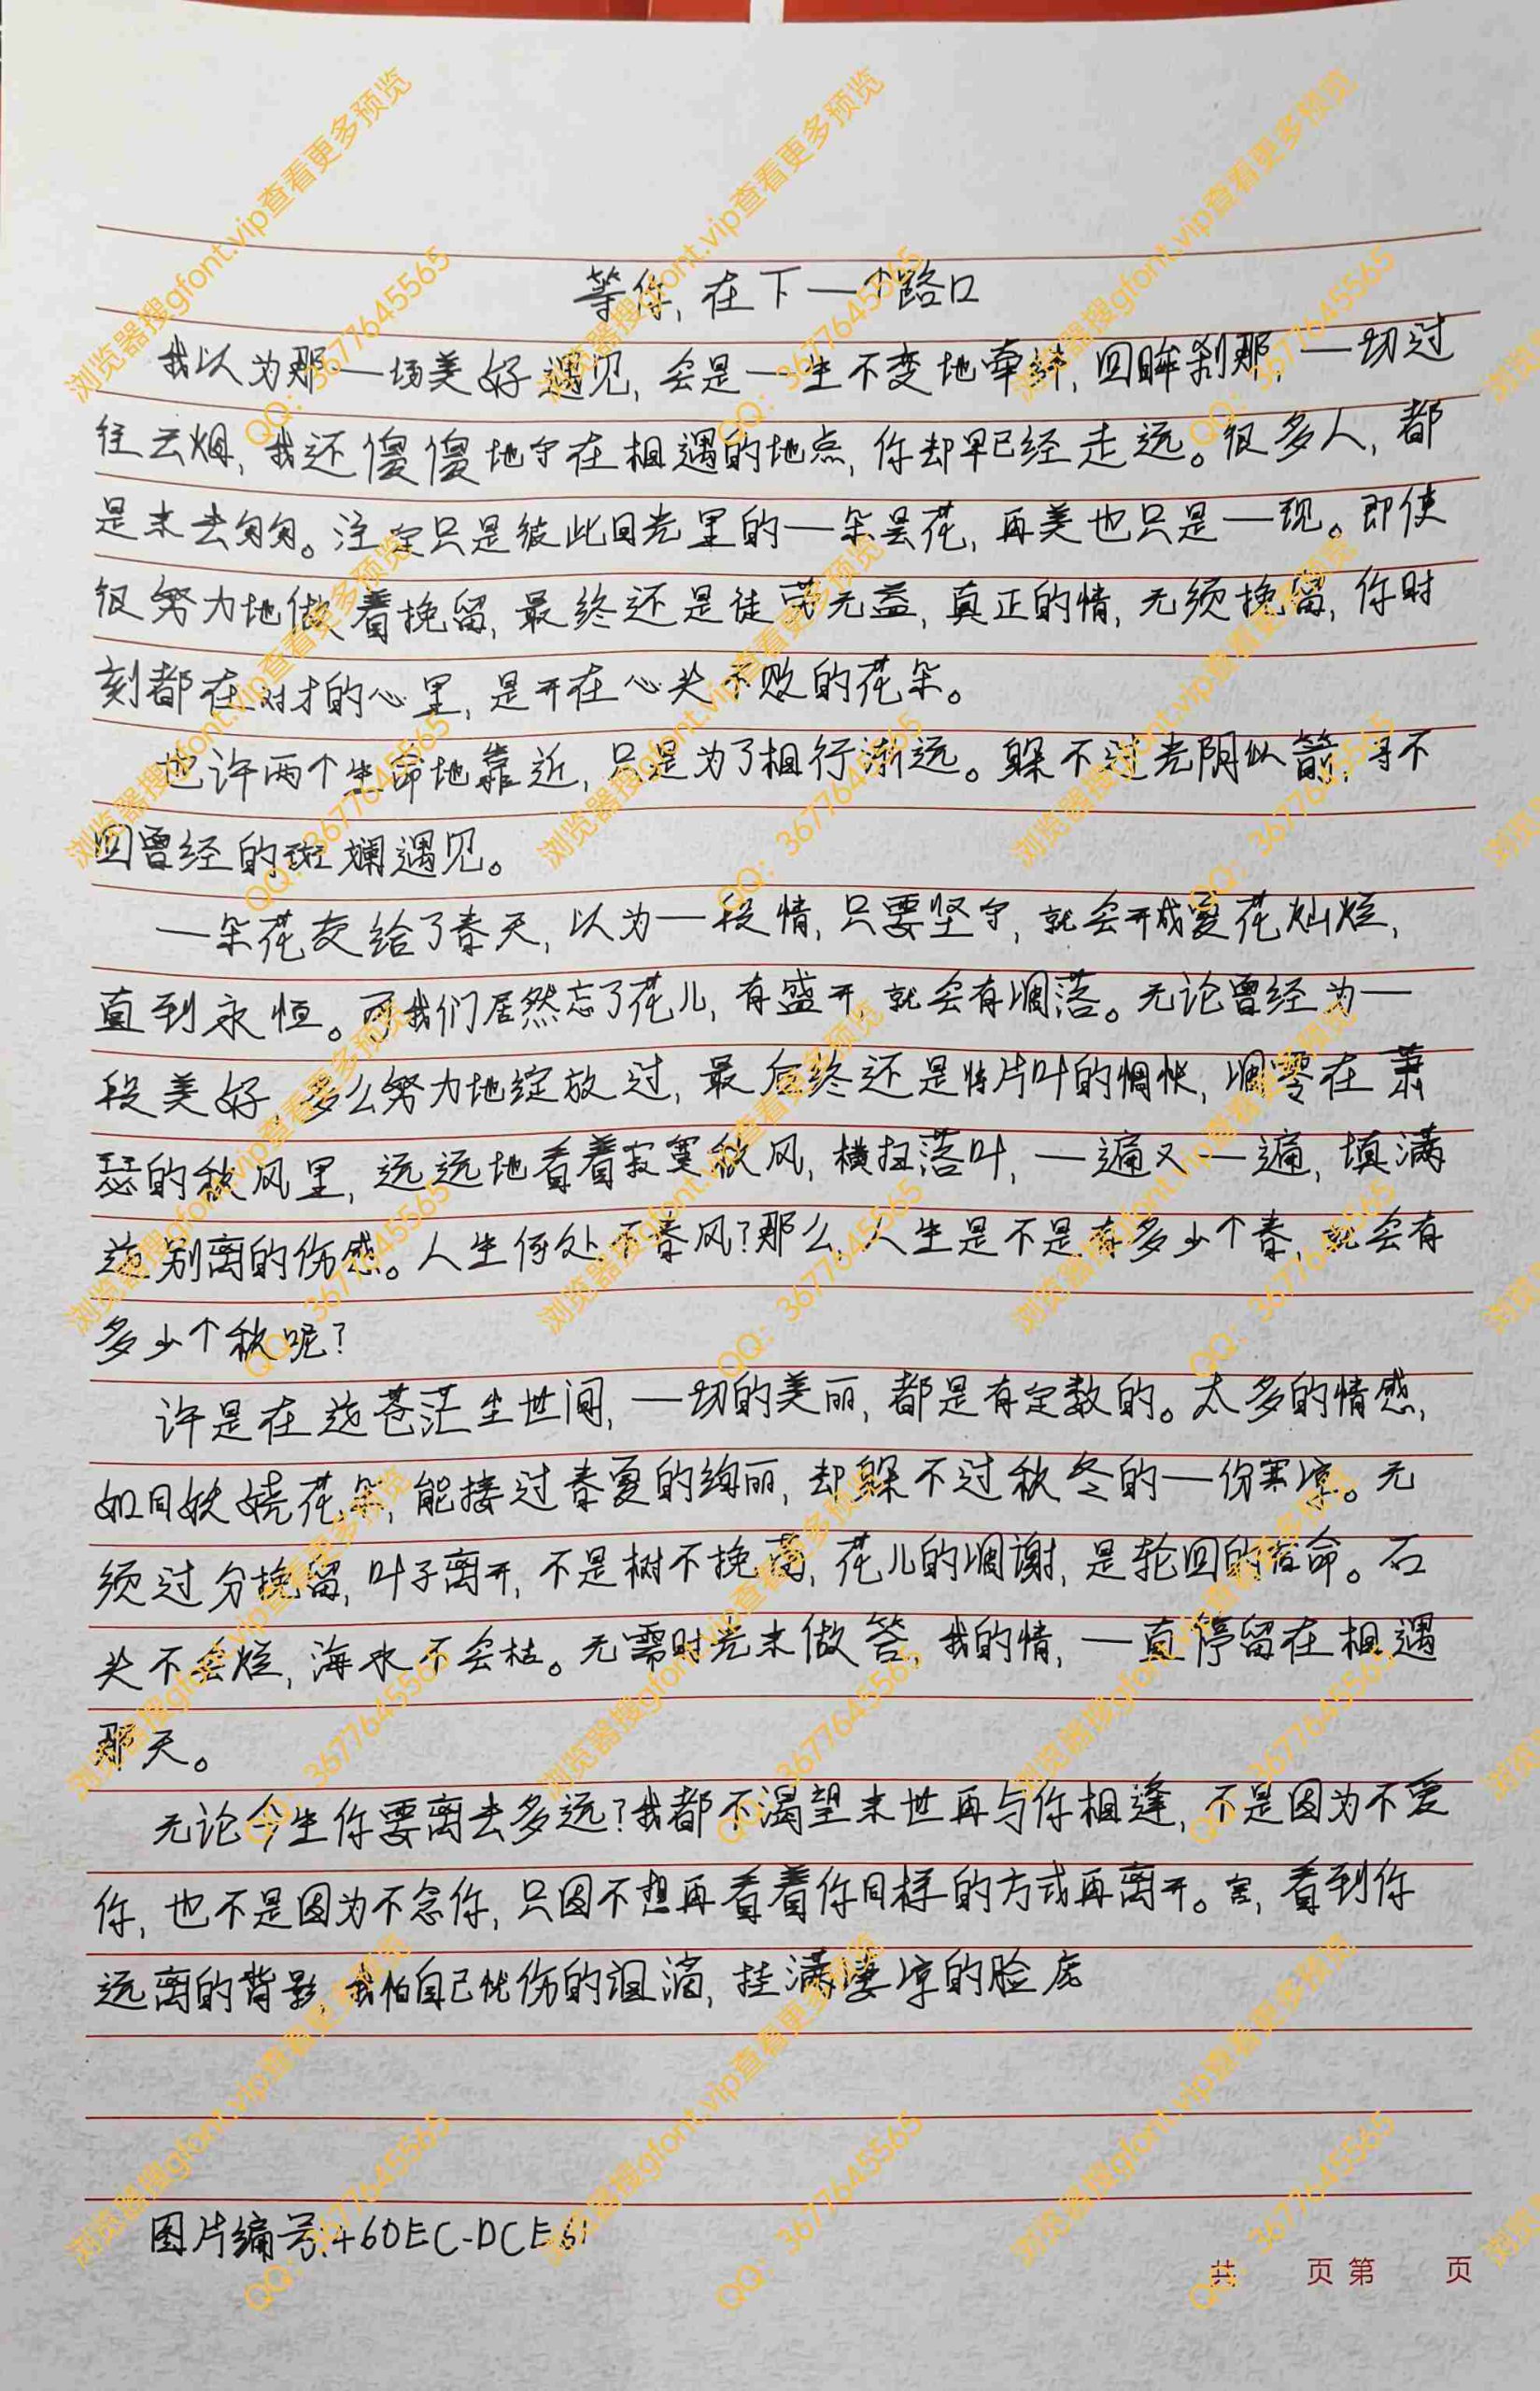 等你,在下一个路口
我以为那一场美好遇见,会是一生不变地牵绊,回眸刹那,一切过
往云烟,我还傻傻地守在相遇的地点,你却早已经走远。很多人,都
是来去匆匆。注定只是彼此目光里的一朵昙花,再美也只是一现。即使
很努力地做着挽留,最终还是徒劳无益,真正的情,无须挽留,你时
刻都在对才的心里,是开在心头不败的花朵。
也许两个生命地靠近,只是为了相行渐远。躲不过光阴似箭,寻不
回曾经的斑斓遇见。
一朵花交给了春天,以为一段情,只要坚守,就会开成夏花灿烂,
直到永恒。可我们居然忘了花儿,有盛开,就会有凋落。无论曾经为一
段美好,多么努力地绽放过,最后终还是将片叶的惆怅,凋零在萧
瑟的秋风里,远远地看着寂寞秋风,横扫落叶,一遍又一遍,填满
这别离的伤感。人生何处不春风?那么,人生是不是有多少个春,就会有
多少个秋呢?
许是在这苍茫尘世间,一切的美丽,都是有定数的。太多的情感,
如同妖娆花朵,能接过春夏的绚丽,却躲不过秋冬的一份寒凉。无
须过分挽留,叶子离开,不是树不挽留,花儿的凋谢,是轮回的宿命。石
头不会烂,海水不会枯。无需时光来做答,我的情,一直停留在相遇
那天。
无论今生你要离去多远?我都不渴望来世再与你相逢,不是因为不爱
你,也不是因为不念你,只因不想再看着你同样的方式再离开。害,看到你
远离的背影,我怕自己忧伤的泪滴,挂满凄凉的脸庞
图片编号:460EC-DCE61
共 页 第 页
浏览器搜gfont.vip查看更多预览
QQ:3677645565